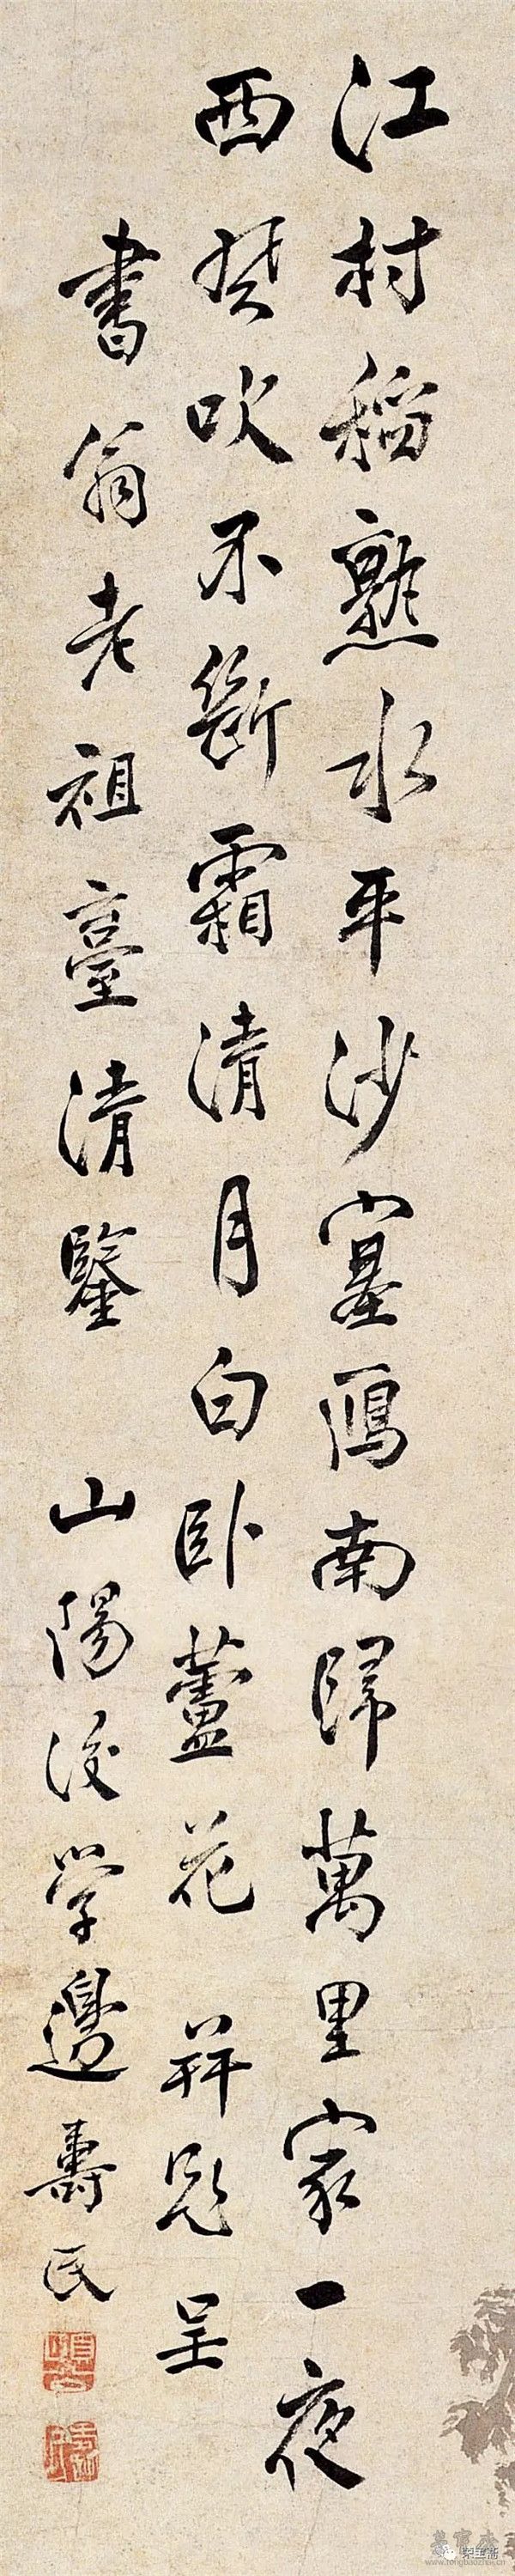 江村稻熟水平沙塞鴈南歸萬里家一夜
西風吹不斷霜清月白卧蘆花 并題呈
書翁老祖臺清鑒 山陽後學邊壽民
www.rongbaozhai.cn